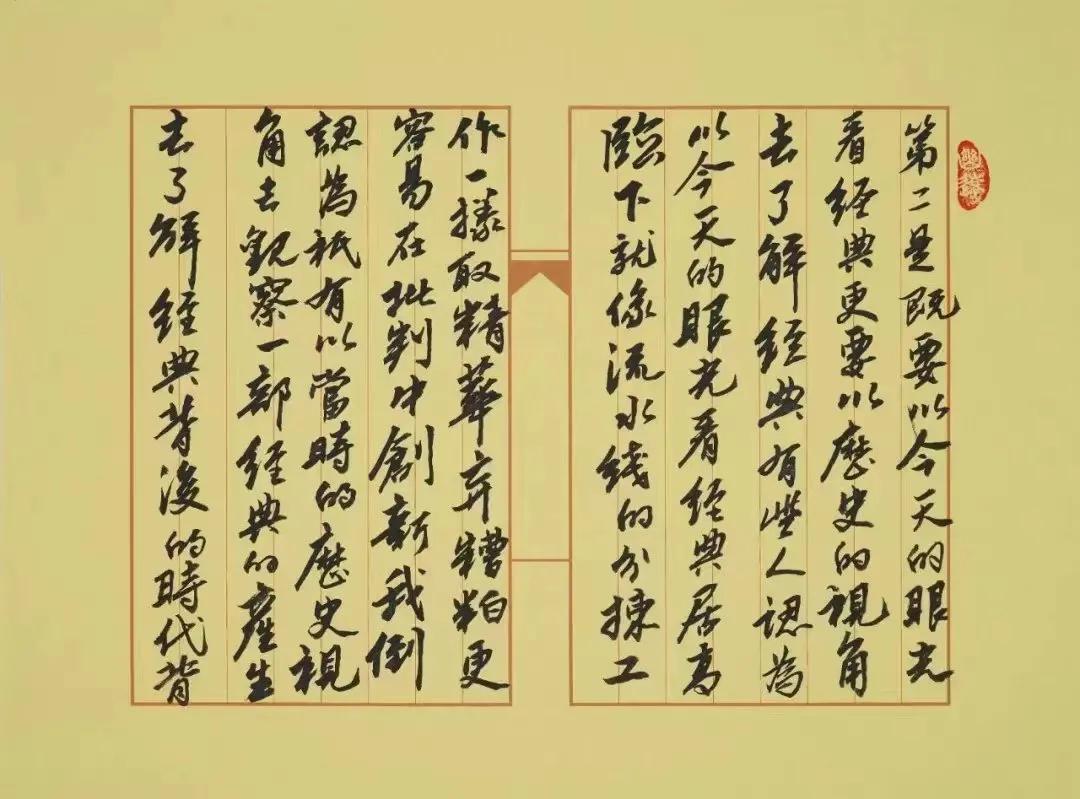 第二是既要以今天的眼光
看经典更要以歷史的視角
去了解经典有些人認為
以今天的眼光看经典居高
臨下就像流水线的分揀工
作一樣取精華弃糟粕更
容易在批判中創新我倒
認為衹有以當時的歷史視
角去觀察一部经典的產生
去了解经典背後的時代背